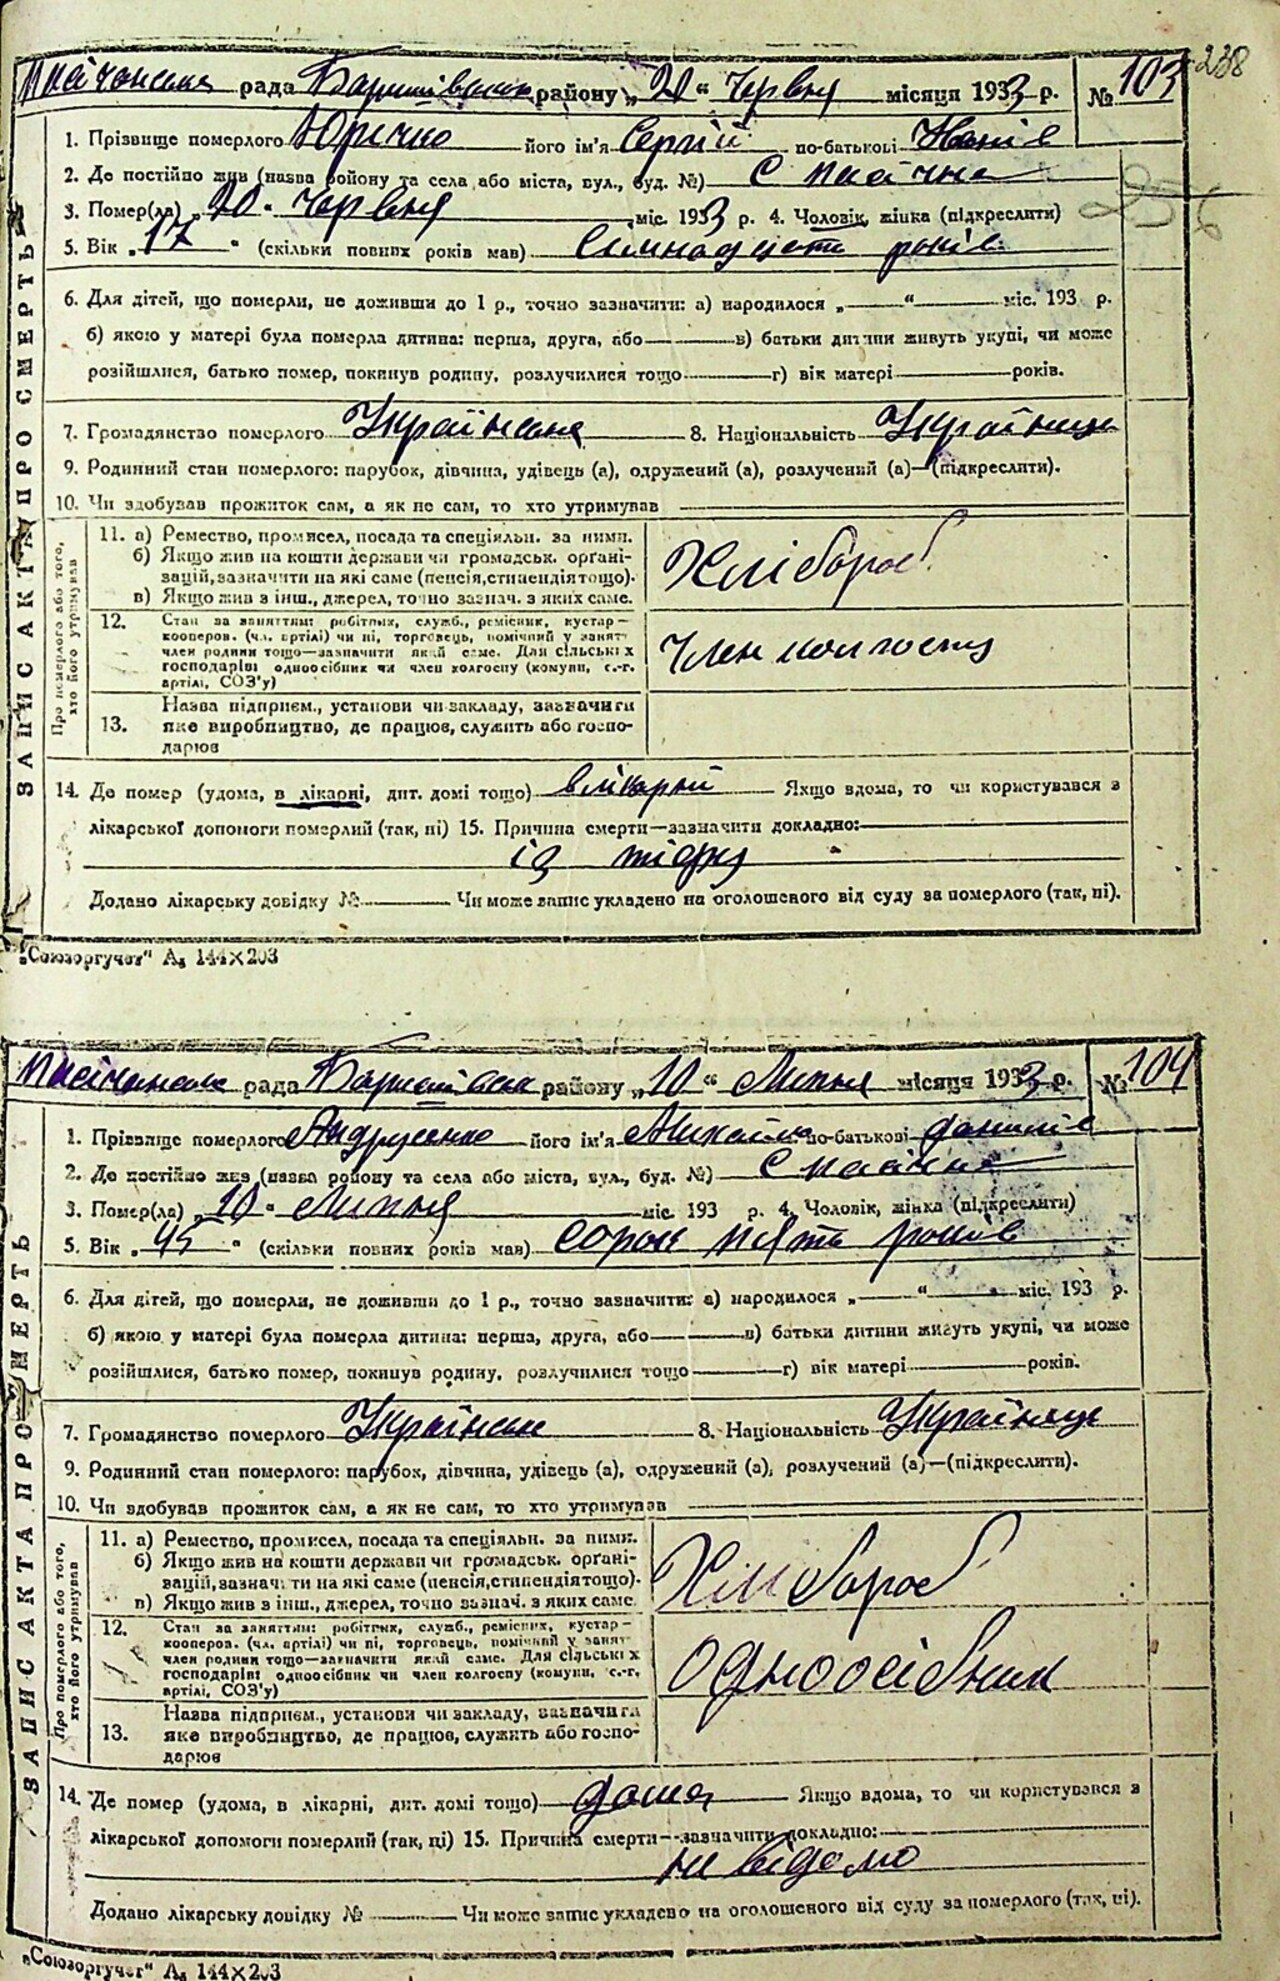 238
Пасічанська рада Баришівського району „20“ Червня місяця 1933 р. № 103
1. Прізвище померлого його ім'я Сергій по-батькові
2. Де постійно жив (назва району та села або міста, вул., буд. №) С Пасічна
3. Помер(ла) „20“ Червня міс. 1933 р. 4. Чоловік, жінка (підкреслити)
5. Вік „17“ (скільки повних років мав) Сімнадцять років
6. Для дітей, що померли, не доживши до 1 р., точно зазначити: а) народилося „ “ міс. 193 р.
б) якою у матері була померла дитина: перша, друга, або в) батьки дитини живуть укупі, чи може
розійшлися, батько помер, покинув родину, розлучилися тощо г) вік матері років.
7. Громадянство померлого Українська 8. Національність Українець
9. Родинний стан померлого: парубок, дівчина, удівець (а), одружений (а), розлучений (а)—(підкреслити).
10. Чи здобував прожиток сам, а як не сам, то хто утримував
ЗАПИС АКТА ПРО СМЕРТЬ
Про померлого або того, хто його утримував
11. а) Ремество, промисел, посада та спеціяльн. за ними.
б) Якщо жив на кошти держави чи громадськ. органі-
зацій, зазначити на які саме (пенсія, стипендія тощо).
в) Якщо жив з інш., джерел, точно зазнач. з яких саме.
Хлібороб
12. Стан за заняттям: робітник, служб., ремісник, кустар—
кооперов. (чл. артілі) чи ні, торговець, помічний у занят-
член родини тощо—зазначити який саме. Для сільських
господарів: одноосібник чи член колгоспу (комуни, с.-г.
артілі, СОЗ'у)
Член колгоспу
13. Назва підприєм., установи чи закладу, зазначити
яке виробництво, де працює, служить або госпо-
дарює
14. Де помер (удома, в лікарні, дит. домі тощо) в лікарні Якщо вдома, то чи користувався з
лікарської допомоги померлий (так, ні) 15. Причина смерти—зазначити докладно:
із тіфу
Додано лікарську довідку № Чи може запис укладено на оголошеного від суду за померлого (так, ні).
„Союзоргучет“ А₅ 144×203
Пасічанська рада Баришівська району „10“ Липня місяця 1933 р. № 104
1. Прізвище померлого Андрусенко його ім'я Михайло по-батькові Данилів
2. Де постійно жив (назва району та села або міста, вул., буд. №) С Пасічна
3. Помер(ла) „10“ Липня міс. 193 р. 4. Чоловік, жінка (підкреслити)
5. Вік „45“ (скільки повних років мав) сорок пять років
6. Для дітей, що померли, не доживши до 1 р., точно зазначити: а) народилося „ “ міс. 193 р.
б) якою у матері була померла дитина: перша, друга, або в) батьки дитини живуть укупі, чи може
розійшлися, батько помер, покинув родину, розлучилися тощо г) вік матері років.
7. Громадянство померлого Українське 8. Національність Українець
9. Родинний стан померлого: парубок, дівчина, удівець (а), одружений (а), розлучений (а)—(підкреслити).
10. Чи здобував прожиток сам, а як не сам, то хто утримував
ЗАПИС АКТА ПРО СМЕРТЬ
Про померлого або того, хто його утримував
11. а) Ремество, промисел, посада та спеціяльн. за ними.
б) Якщо жив на кошти держави чи громадськ. органі-
зацій, зазначити на які саме (пенсія, стипендія тощо).
в) Якщо жив з інш., джерел, точно зазнач. з яких саме
Хлібороб
12. Стан за заняттям: робітник, служб., ремісник, кустар—
кооперов. (чл. артілі) чи ні, торговець, помічний у занят-
член родини тощо—зазначити який саме. Для сільських
господарів: одноосібник чи член колгоспу (комуни, с.-г.
артілі, СОЗ'у)
Одноосібник
13. Назва підприєм., установи чи закладу, зазначити
яке виробництво, де працює, служить або госпо-
дарює
14. Де помер (удома, в лікарні, дит. домі тощо) дома Якщо вдома, то чи користувався з
лікарської допомоги померлий (так, ні) 15. Причина смерти—зазначити докладно:
не відомо
Додано лікарську довідку № Чи може запис укладено на оголошеного від суду за померлого (так, ні).
„Союзоргучет“ А₅ 144×203